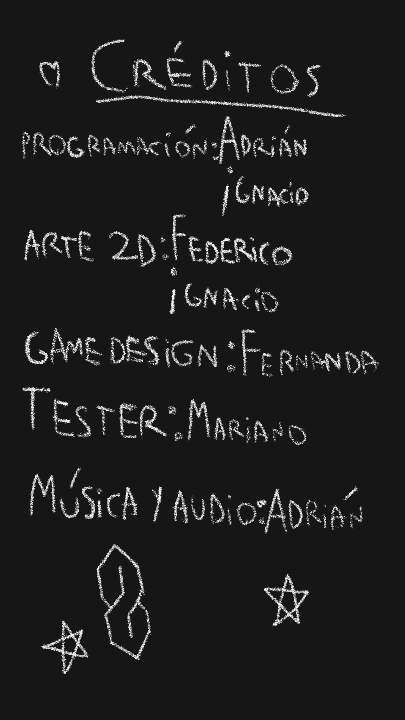 CRÉDITOS
PROGRAMACIÓN: ADRIÁN
IGNACIO
ARTE 2D: FEDERICO
IGNACIO
GAME DESIGN: FERNANDA
TESTER: MARIANO
MÚSICA Y AUDIO: ADRIÁN